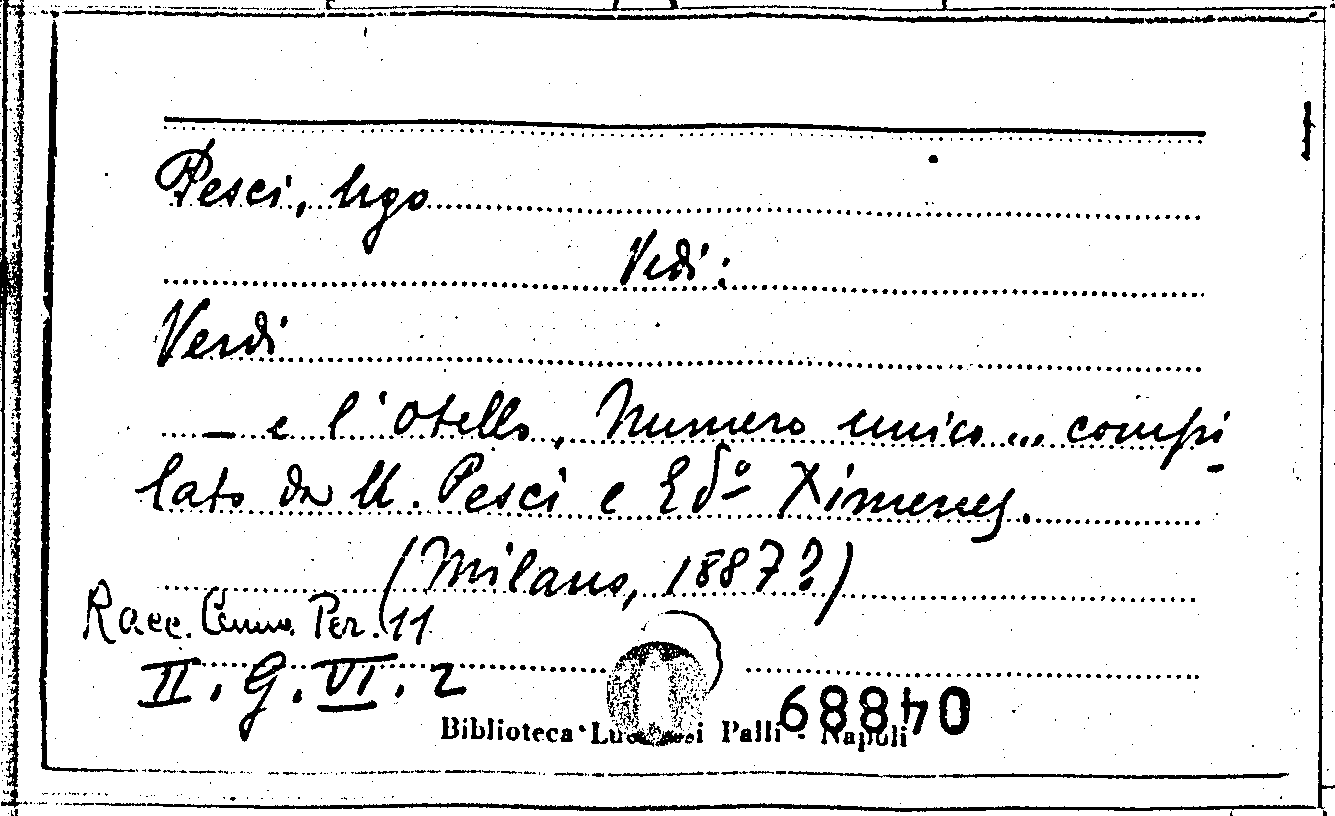 Pesci, Ugo
Vedi:
Verdi
— e l'Otello, Numero unico... compi-
lato da U. Pesci e Edº Ximenes.
(Milano, 1887?)
Racc. Per. 11
II. G. VI. 2
04889
Biblioteca Lucchesi Palli - Napoli